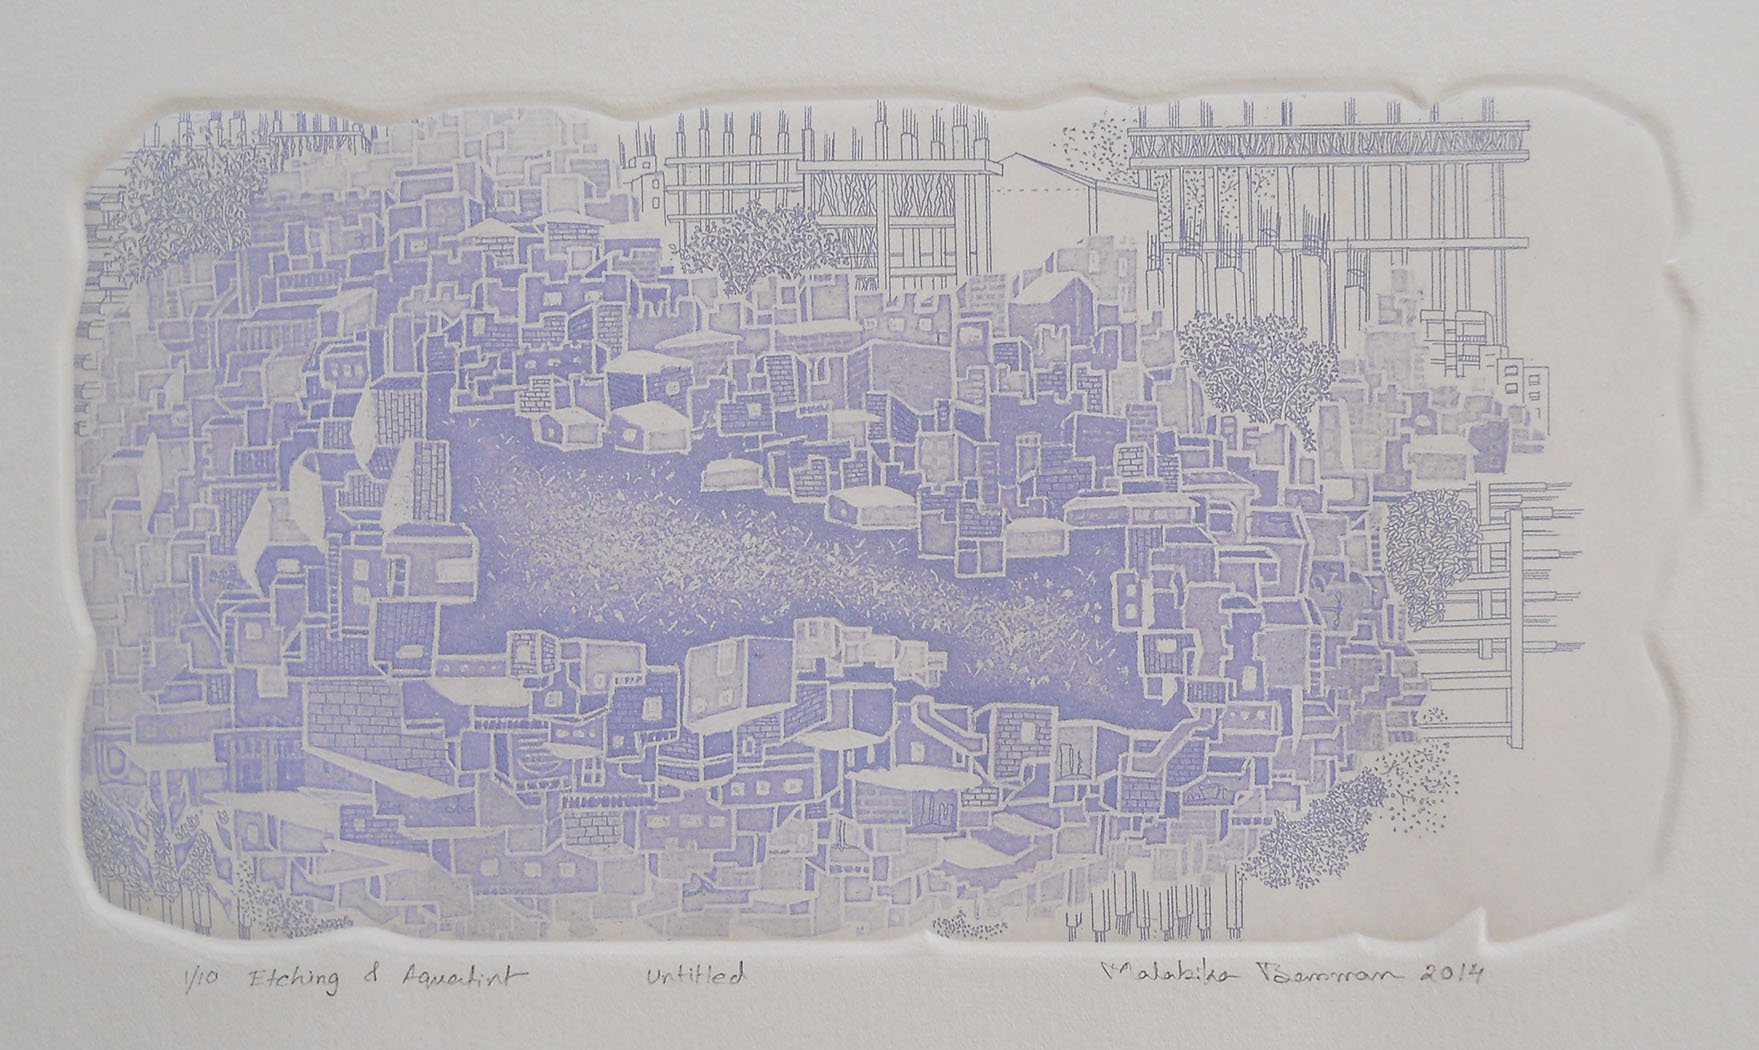 1/10 Etching & Aquatint Untitled Malabika Barman 2014